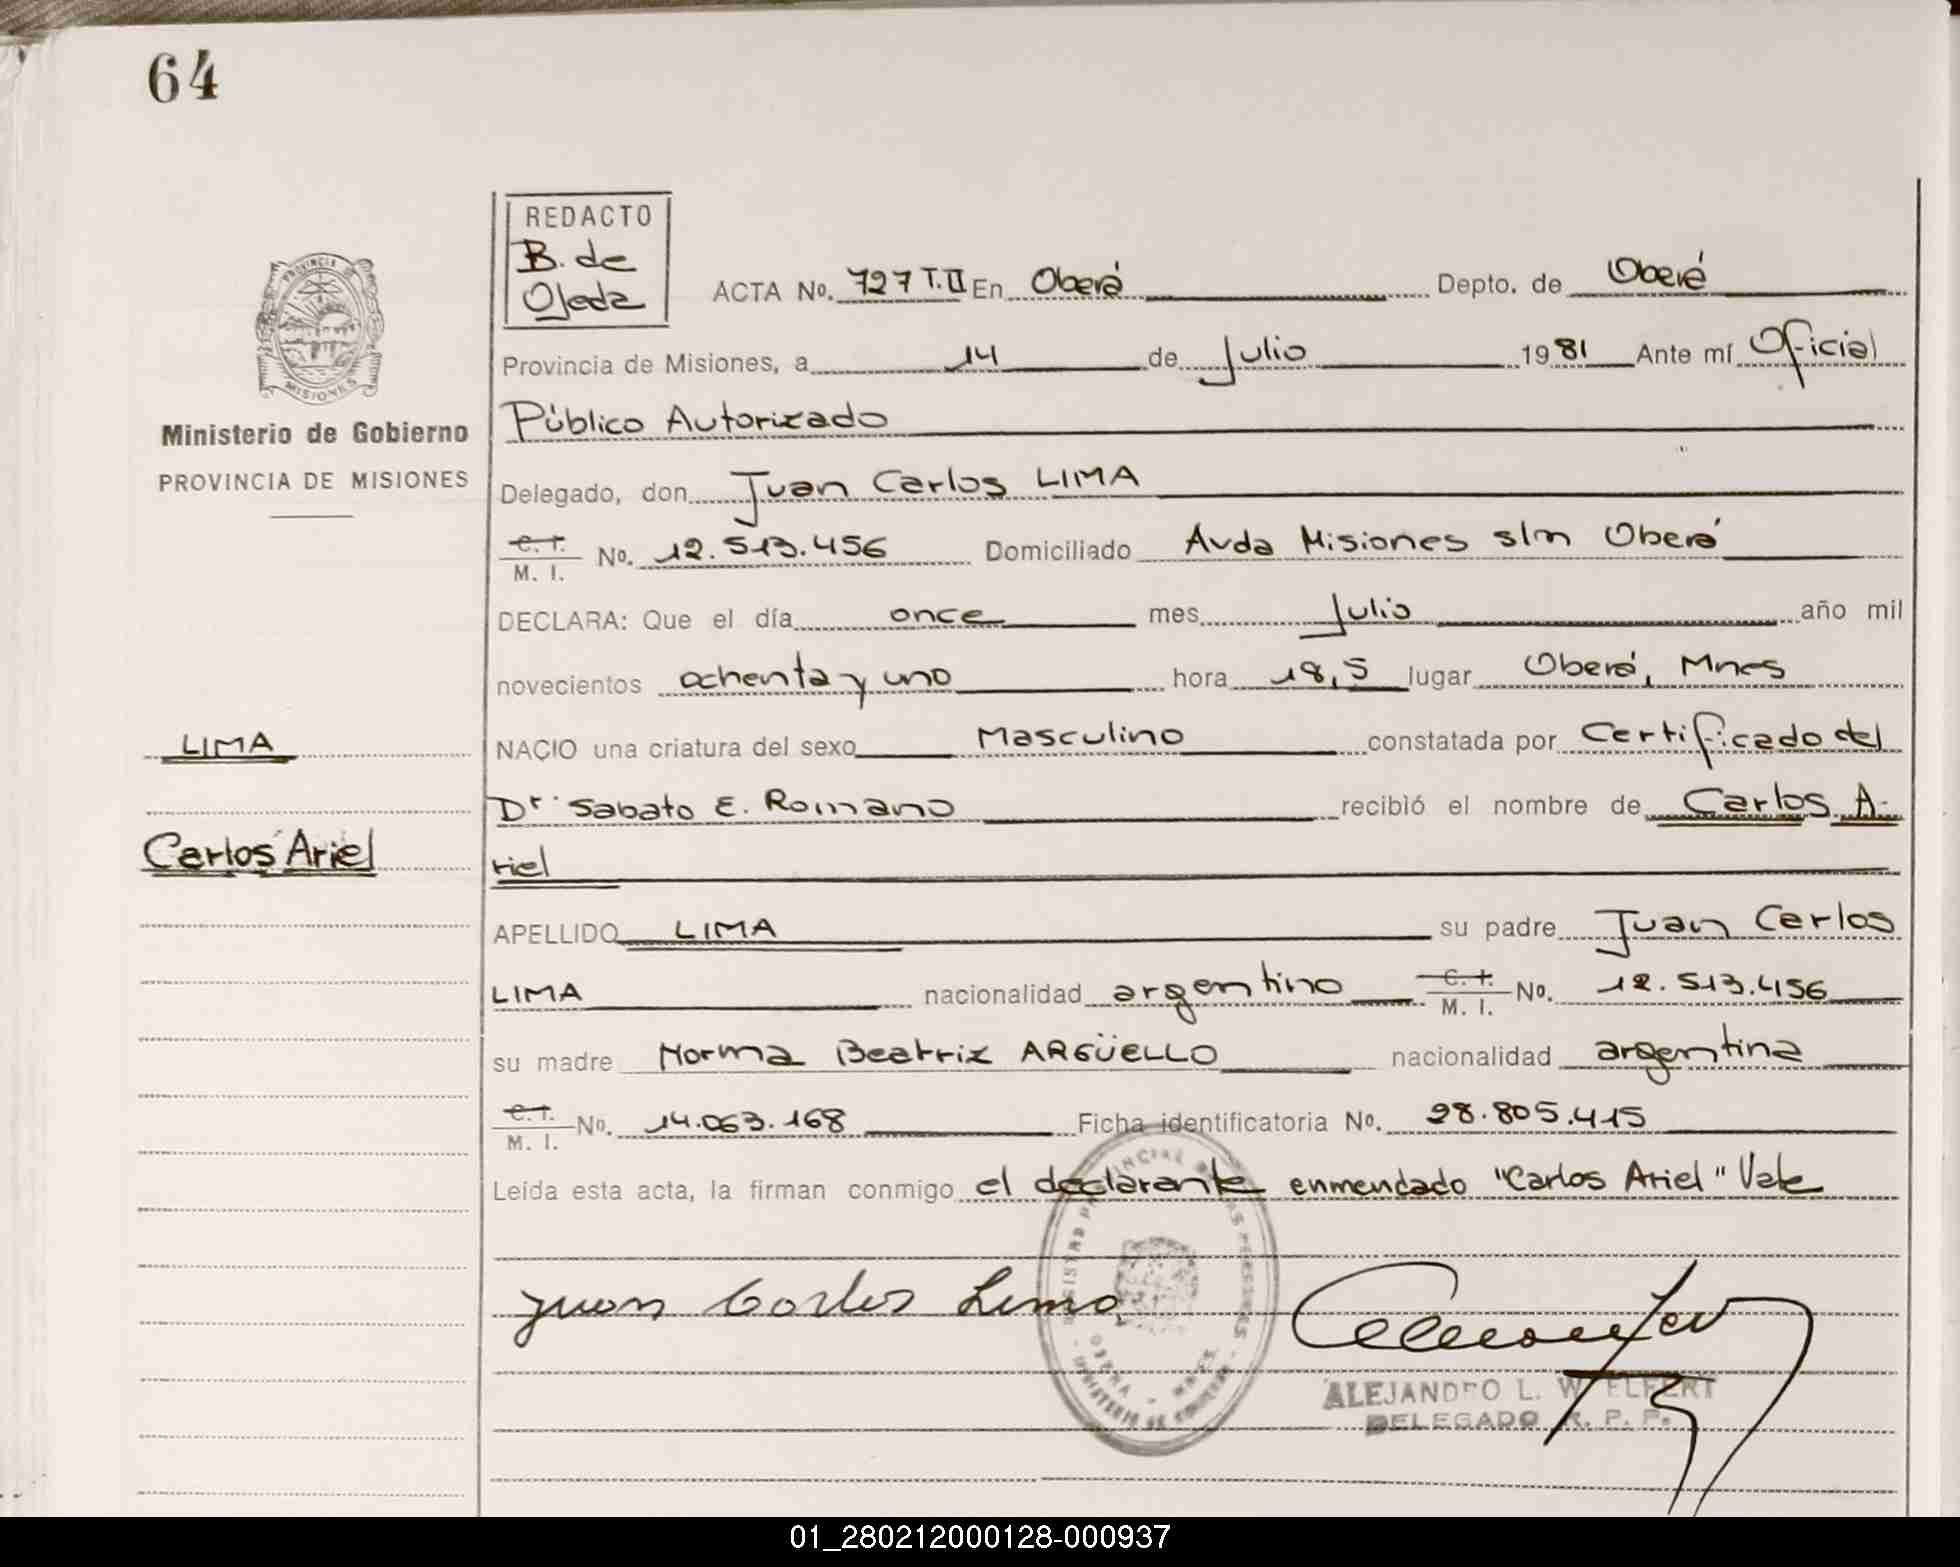 64
REDACTO
B. de
Ojeda
ACTA No. 727 T.II En Oberá Depto. de Oberá
Provincia de Misiones, a 14 de Julio 1981 Ante mí Oficial
Público Autorizado
Delegado, don Juan Carlos LIMA
C. I. / M. I. No. 12.513.456 Domiciliado Avda Misiones s/n Oberá
DECLARA: Que el día once mes Julio año mil
novecientos ochenta y uno hora 18,5 lugar Oberá, Mnes
NACIO una criatura del sexo Masculino constatada por Certificado del
Dr. Sabato E. Romano recibió el nombre de Carlos A-
riel
APELLIDO LIMA su padre Juan Carlos
LIMA nacionalidad argentino C. I. / M. I. No. 12.513.456
su madre Norma Beatriz ARGÜELLO nacionalidad argentina
C. I. / M. I. No. 14.063.168 Ficha identificatoria No. 28.805.415
Leída esta acta, la firman conmigo el declarante enmendado "Carlos Ariel" Vale
Juan Carlos Lima
ALEJANDRO L. W. ELFERT
DELEGADO R. P. P.
PROVINCIA DE
MISIONES
Ministerio de Gobierno
PROVINCIA DE MISIONES
LIMA
Carlos Ariel
01_280212000128-000937